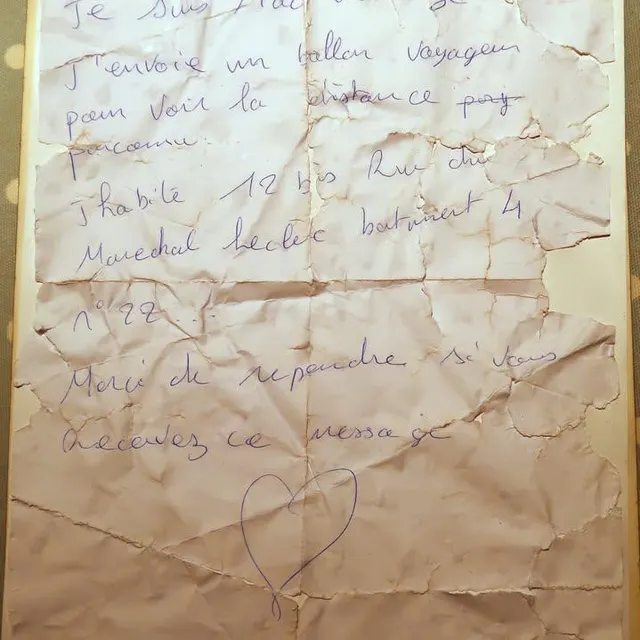 Je suis
J'envoie un ballon voyageur
pour voir la distance
parcouru.
J'habite 12 bis Rue du
Marechal Leclerc batiment 4
n° 22...
Merci de repondre si vous
recevez ce message